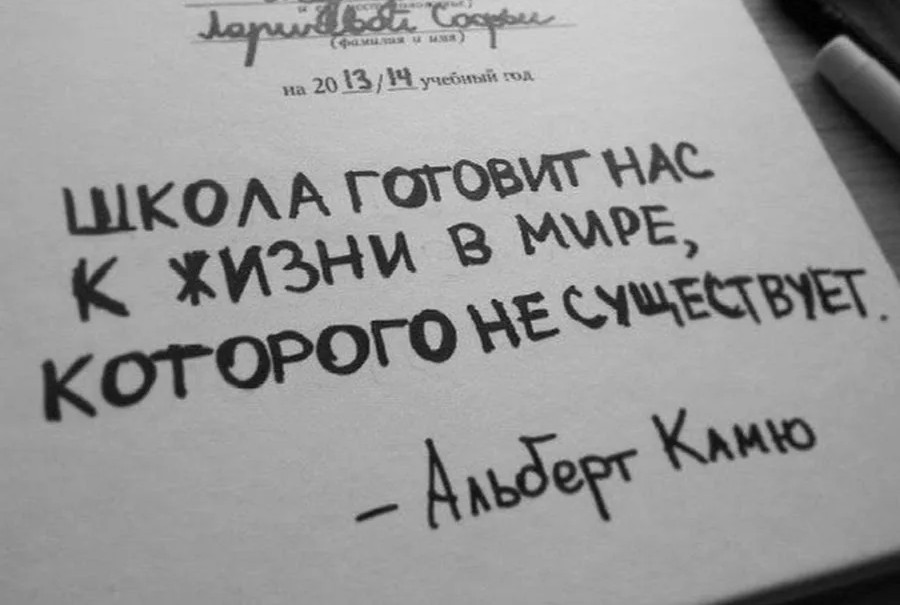 (фамилия и имя)
на 2013/14 учебный год
ШКОЛА ГОТОВИТ НАС
К ЖИЗНИ В МИРЕ,
КОТОРОГО НЕ СУЩЕСТВУЕТ.
– Альберт Камю